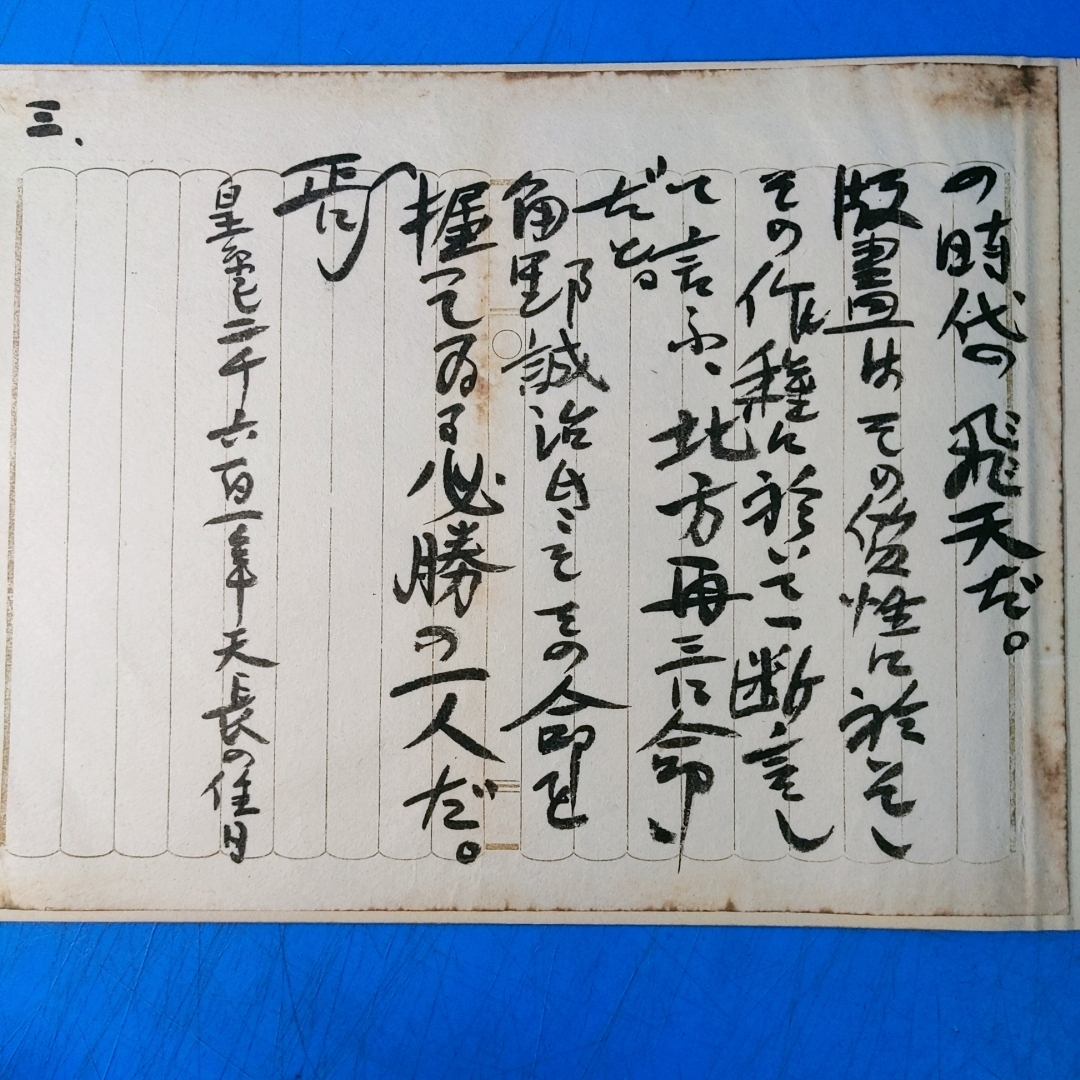 の時代の飛天だ。
版畫はその優性に於そし
その作種に於いて一断言し
て言ふ、北方再三に命、
だと
角野誠治氏こそその命を
握ってゐる必勝の一人だ。
皇電二千六百一年天長の佳日
三、